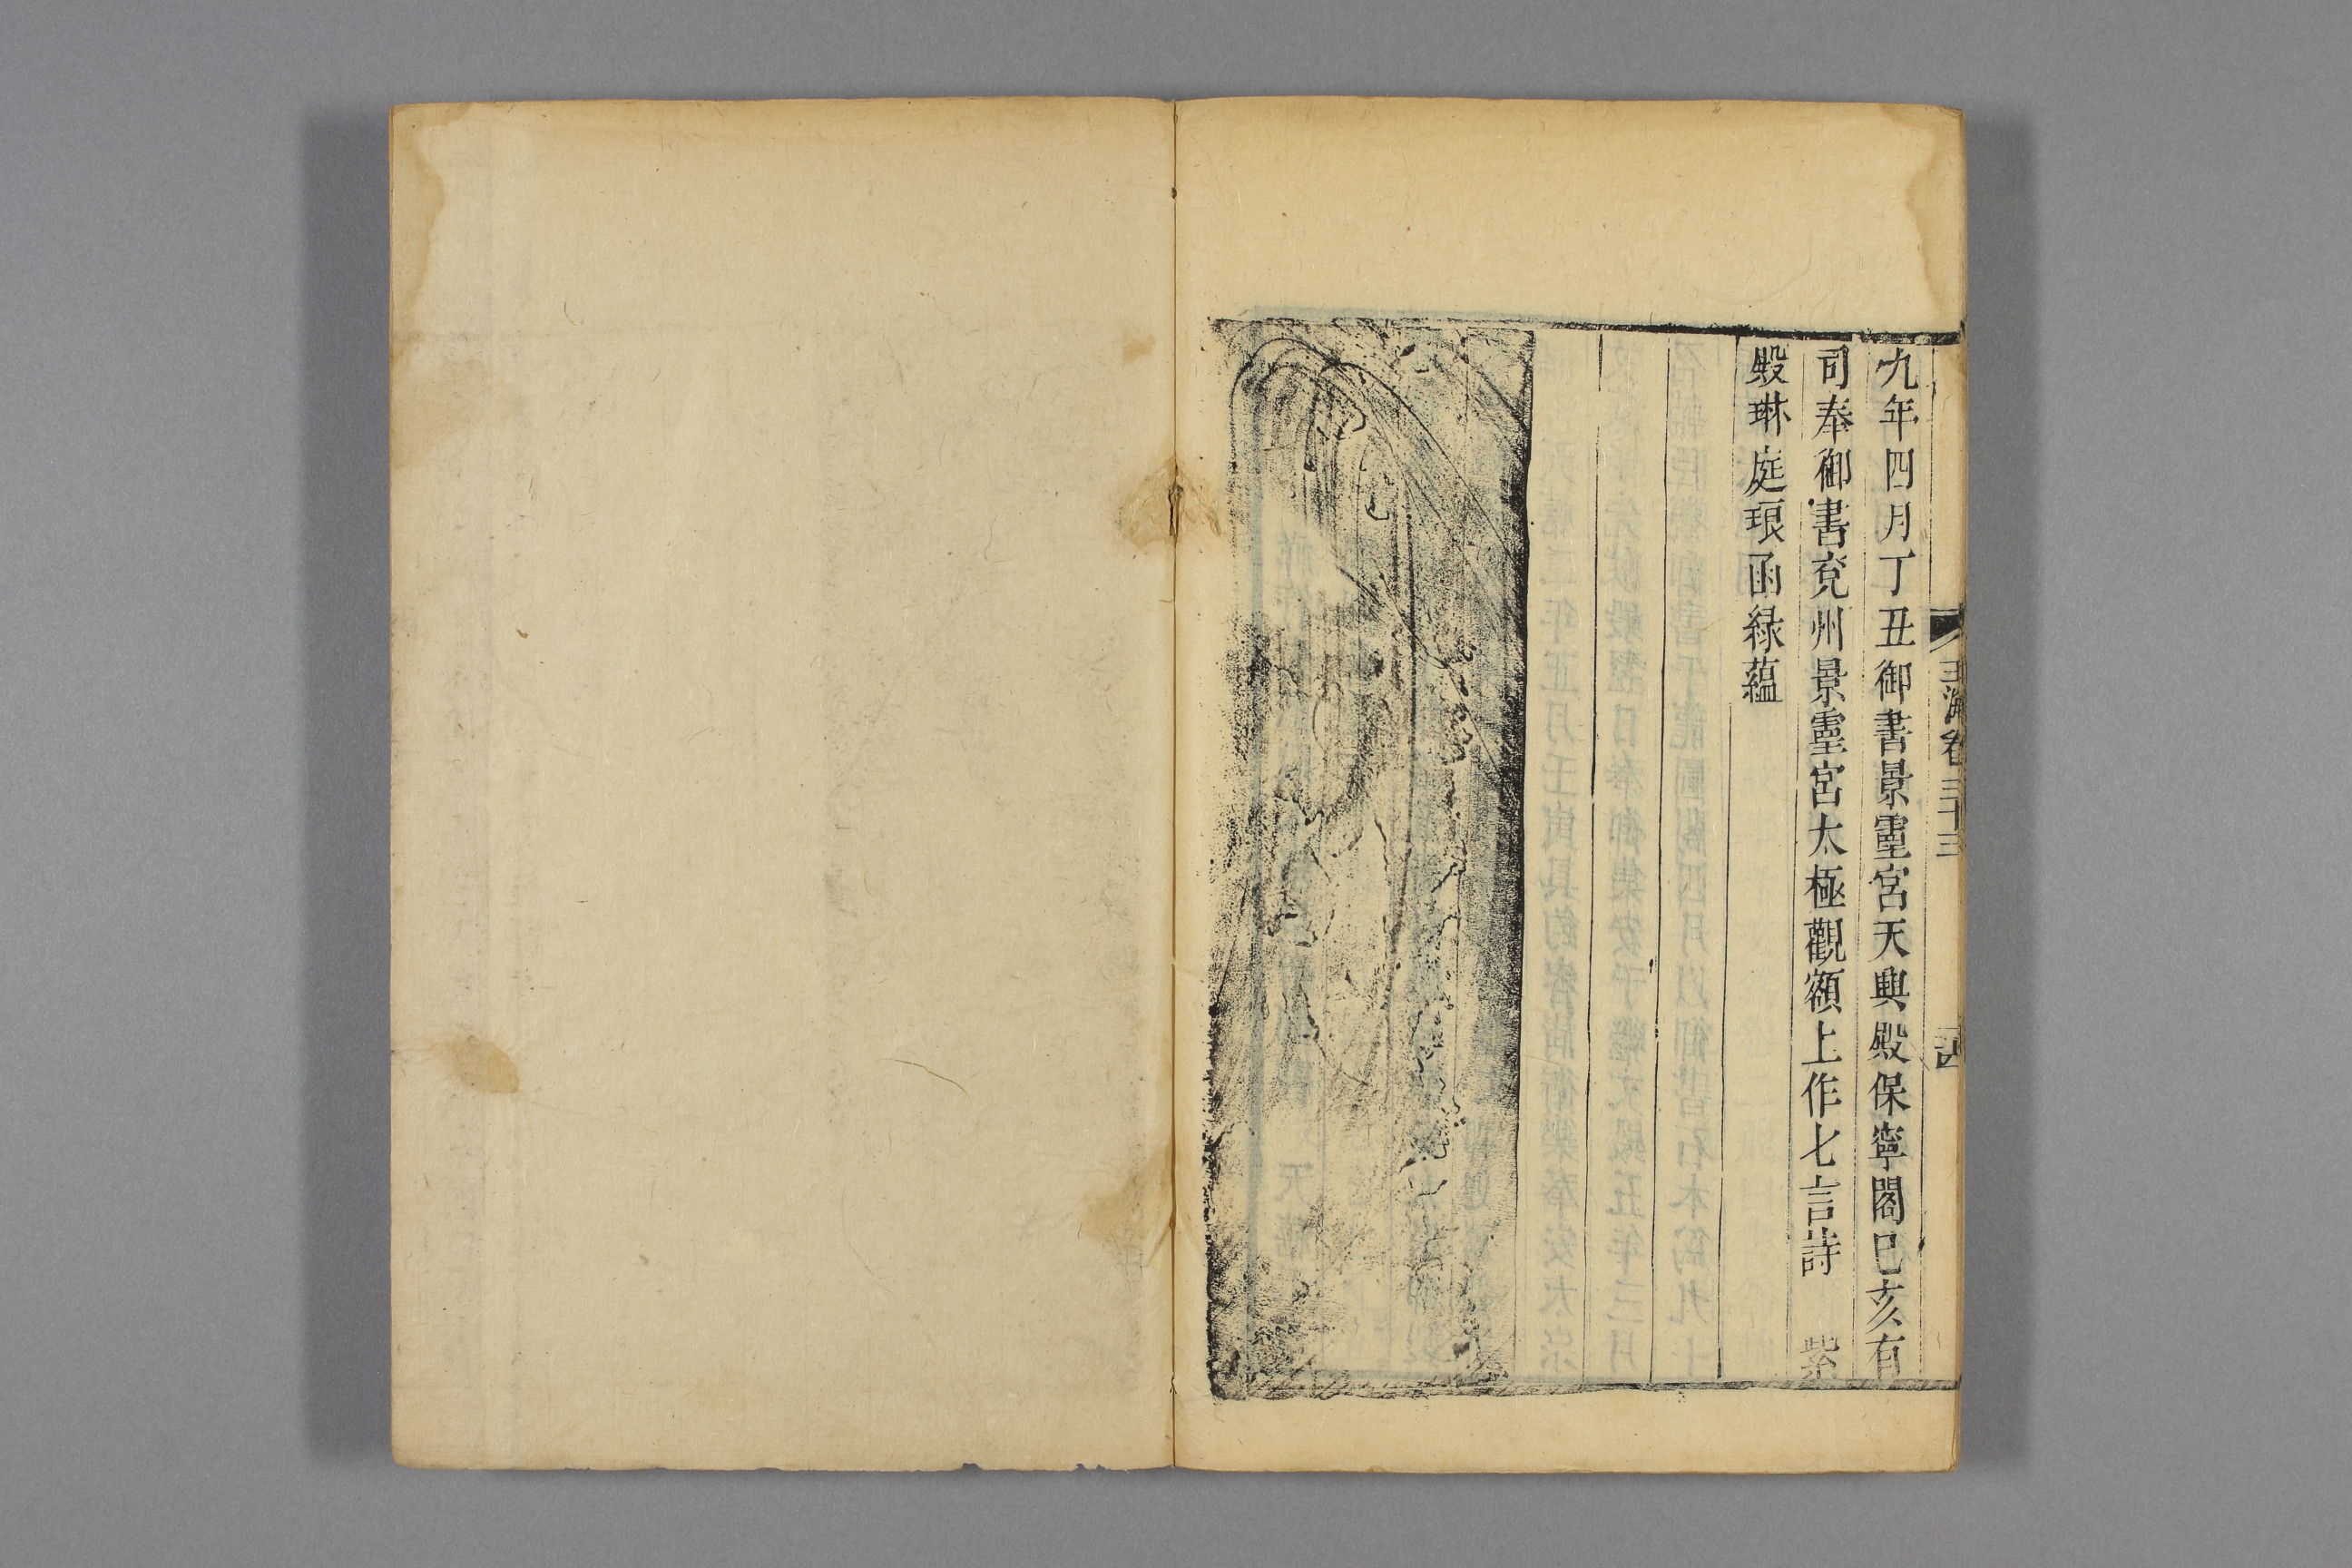 玉海卷三十三
九年四月丁丑御書景靈宮天興殿保寧閣己亥有
司奉御書兖州景靈宮太極觀額上作七言詩　紫
殿琳庭琅函綠蘊